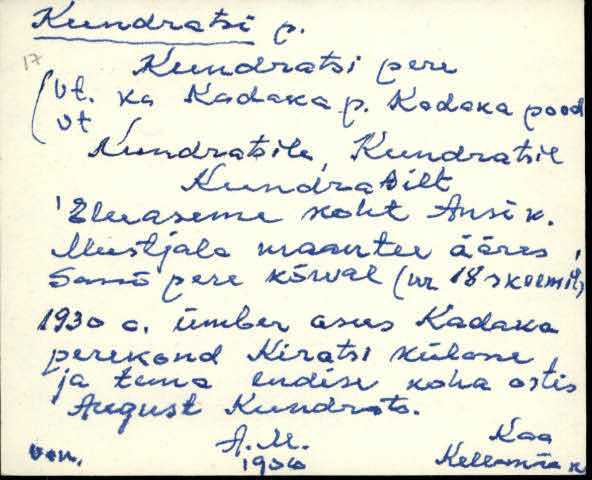 Kundratsi p.
17
Kundratsi pere
(vt. ka Kadaka p. Kadaka pood
vt
Kundratsile, Kundratsil
Kundratsilt
'Eluaseme koht Ansi k.
Mustjala maantee ääres,
Sassi pere kõrval (nr 18 skeemil)
1930 a. ümber asus Kadaka
perekond Kiratsi külasse
ja tema endise koha ostis
August Kundrats.
A.M.
Kaa
van.
Kellamäe k